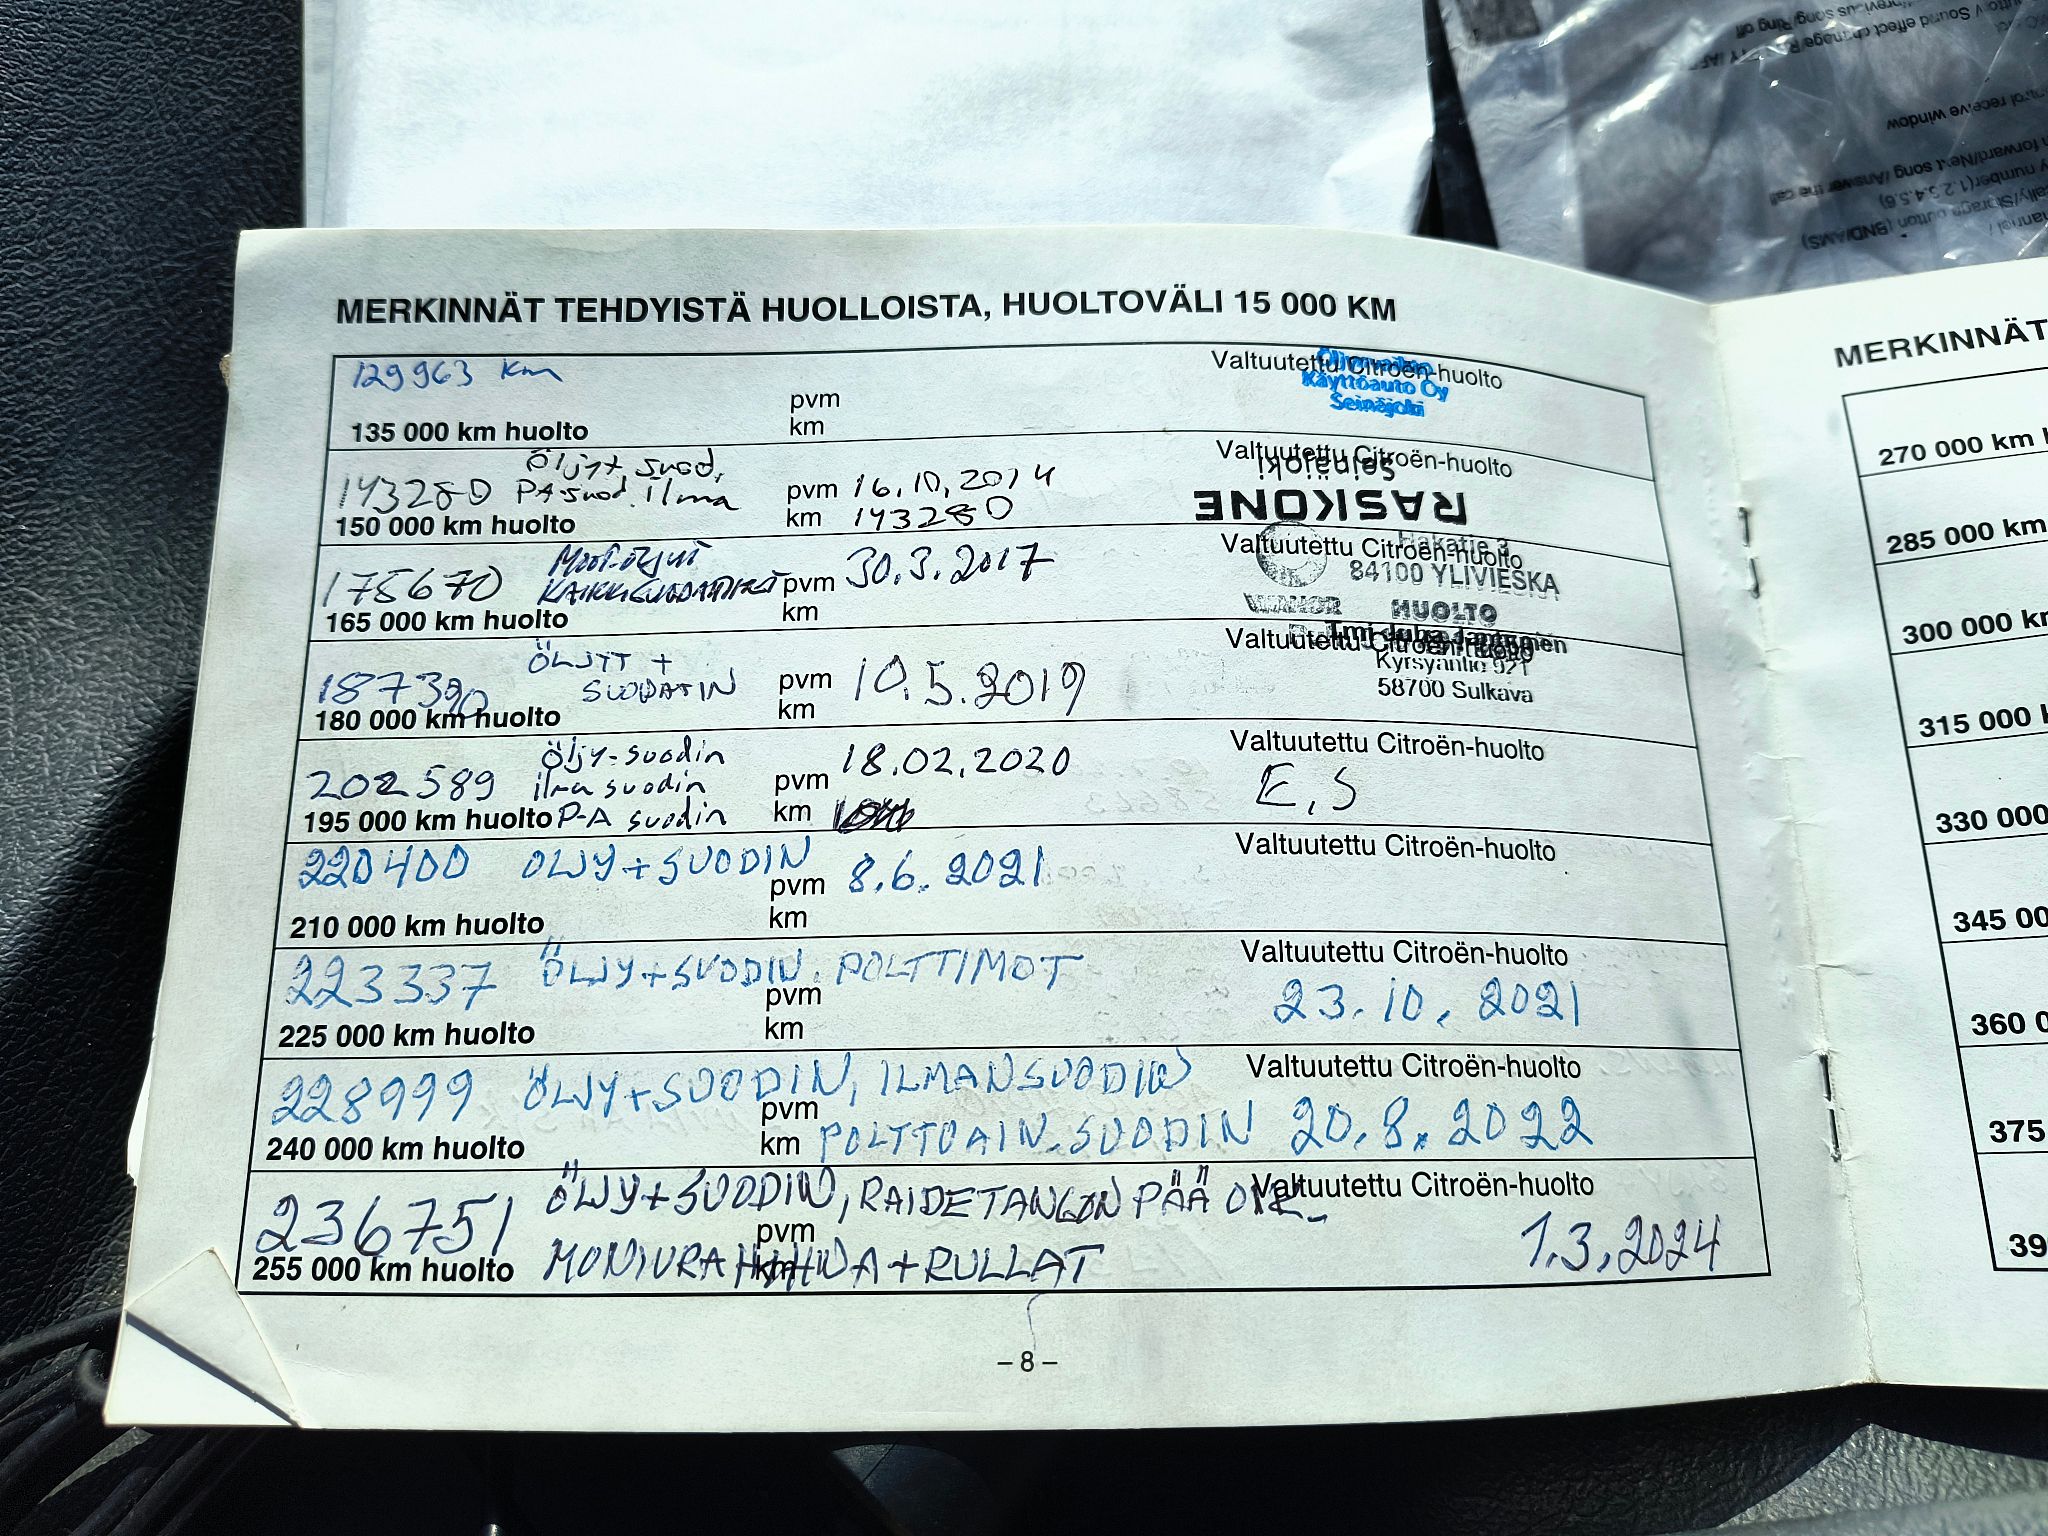 MERKINNÄT TEHDYISTÄ HUOLLOISTA, HUOLTOVÄLI 15 000 KM
129963 Km
Valtuutettu Citroën-huolto
Käyttöauto Oy
Seinäjoki
pvm
km
135 000 km huolto
Öljyt, suod,
143280 PA suod. ilma
pvm 16.10.2014
km 143280
150 000 km huolto
Valtuutettu Citroën-huolto
Seinäjoki
RASKONE
175670
KAIKKI SUODATTIMET
pvm 30.3.2017
km
165 000 km huolto
Valtuutettu Citroën-huolto
Hakatie 3
84100 YLIVIESKA
HUOLTO
187390
ÖLJYT +
SUODATIN
pvm 10.5.2019
km
180 000 km huolto
Valtuutettu Citroën-huolto
Tmi Juha
Kyrsyäntie 921
58700 Sulkava
202589
Öljy-suodin
ilma suodin
P-A suodin
pvm 18.02.2020
km
195 000 km huolto
Valtuutettu Citroën-huolto
E.S
220400 ÖLJY+SUODIN
pvm 8.6.2021
km
210 000 km huolto
Valtuutettu Citroën-huolto
223337 ÖLJY+SUODIN. POLTTIMOT
pvm
km
225 000 km huolto
Valtuutettu Citroën-huolto
23.10.2021
228999 ÖLJY+SUODIN, ILMANSUODIN
pvm
km POLTTOAIN.SUODIN 20.8.2022
240 000 km huolto
Valtuutettu Citroën-huolto
236751 ÖLJY+SUODIN, RAIDETANGON PÄÄ OIK.
pvm
km
MONIURAHIHNA+RULLAT
255 000 km huolto
Valtuutettu Citroën-huolto
1.3.2024
– 8 –
MERKINNÄT
270 000 km
285 000 km
300 000 km
315 000
330 000
345 00
360 0
375
39
Sound effect change
receive window
forward/Next song /Answer the call
number(1.2.3.4.5.6)
button (BND/AMS)